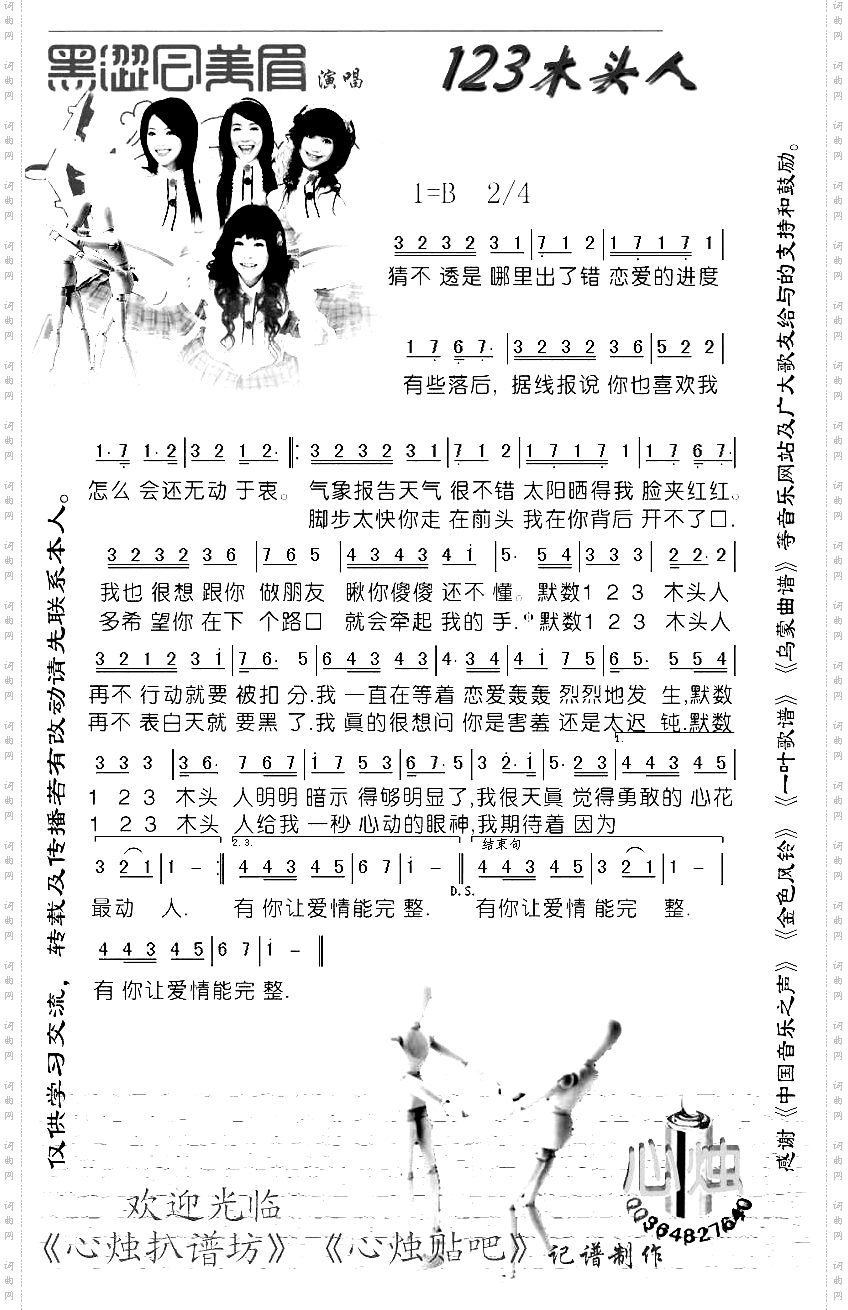 黑涩会美眉 演唱
123木头人
1=B 2/4
3 2 3 2 3 1|7 1 2|1 7 1 7 1|
猜不透是哪里出了错 恋爱的进度
1 7 6 7·|3 2 3 2 3 6|5 2 2|
有些落后, 据线报说你也喜欢我
1·7 1·2|3 2 1 2·‖:3 2 3 2 3 1|7 1 2|1 7 1 7 1|1 7 6 7·|
怎么会还无动于衷。 气象报告天气很不错 太阳晒得我 脸夹红红。
脚步太快你走在前头 我在你背后 开不了口.
3 2 3 2 3 6|7 6 5|4 3 4 3 4 i|5· 5 4|3 3 3|2 2·2|
我也很想跟你 做朋友 瞅你傻傻还不懂。默数1 2 3 木头人
多希望你在下个路口 就会牵起我的手. 默数1 2 3 木头人
3 2 1 2 3 i|7 6· 5|6 4 3 4 3|4·3 4|4 i 7 5|6 5·|5 5 4|
再不行动就要被扣分.我一直在等着 恋爱轰轰烈烈地发生,默数
再不表白天就要黑了.我真的很想问 你是害羞还是太迟钝.默数
1.
3 3 3|3 6·|7 6 7|i 7 5 3|6 7·5|3 2·i|5·2 3|4 4 3 4 5|
1 2 3 木头人明明暗示得够明显了,我很天真觉得勇敢的心花
1 2 3 木头人给我一秒心动的眼神,我期待着因为
2.3.
结束句
3 2 1|1 - :‖4 4 3 4 5|6 7|i -‖4 4 3 4 5|3 2 1|1 -|
D.S.
最动人. 有你让爱情能完整. 有你让爱情能完整.
4 4 3 4 5|6 7|i -‖
有你让爱情能完整.
仅供学习交流, 转载及传播若有改动请先联系本人。
感谢《中国音乐之声》《金色风铃》《一叶歌谱》《乌蒙曲谱》等音乐网站及广大歌友给与的支持和鼓励。
心烛
QQ364827640
欢迎光临
《心烛扒谱坊》《心烛贴吧》记谱制作
词曲网